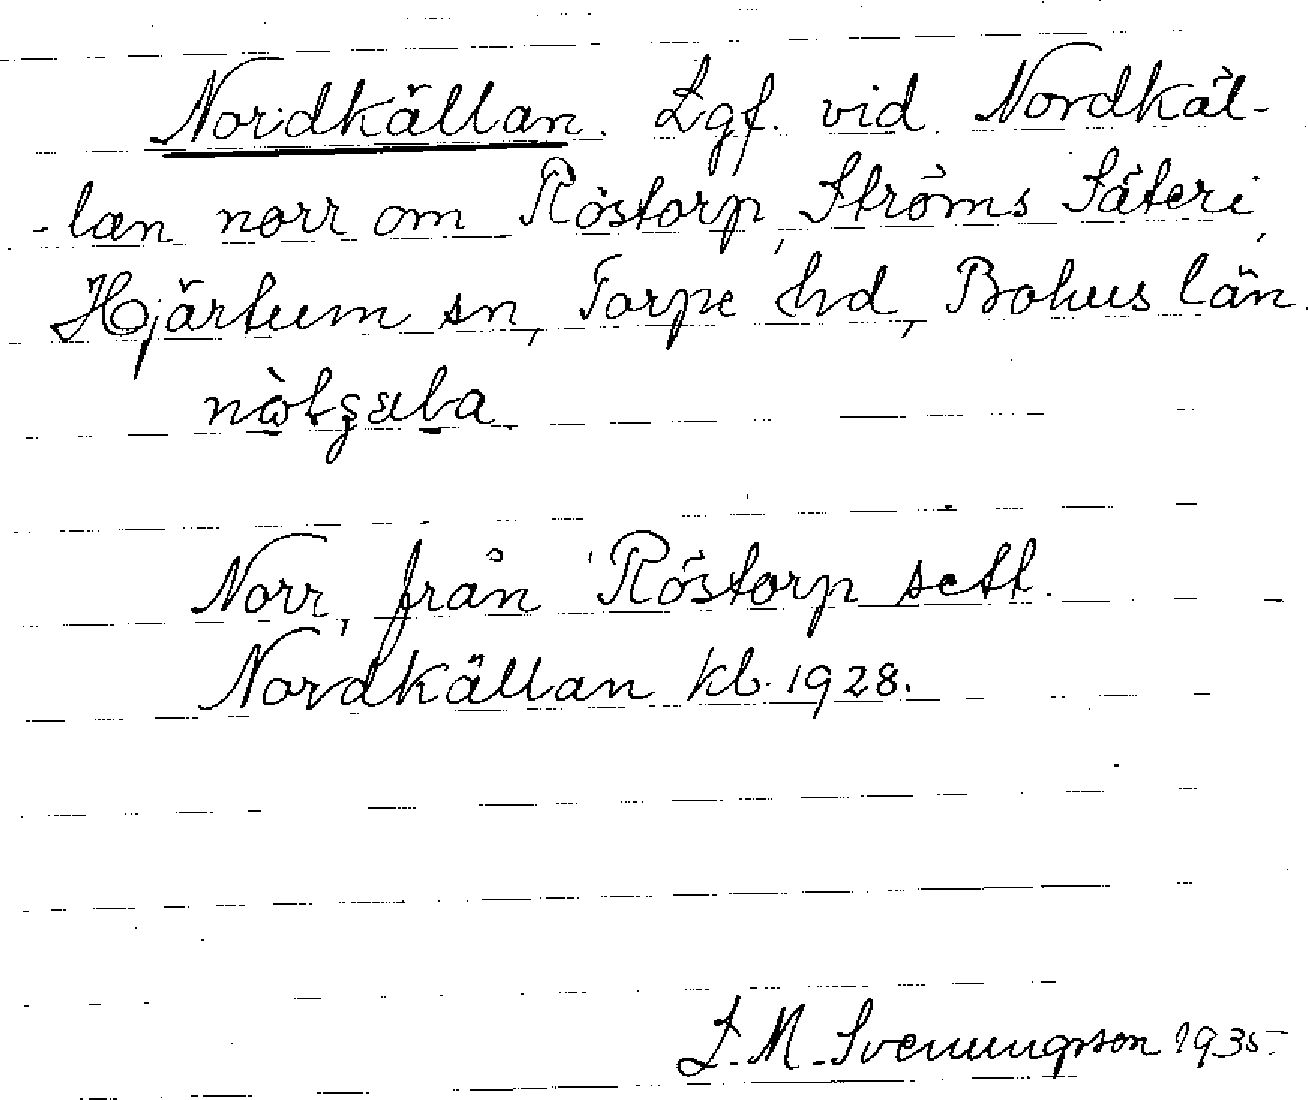 Nordkällan. Lgf. vid Nordkäl-
-lan norr om Röstorp, Ströms Säteri,
Hjärtum sn, Torpe hd, Bohus län.
Norr, från Röstorp sett.
Nordkällan kb. 1928.
L. M. Svenungsson 1935.